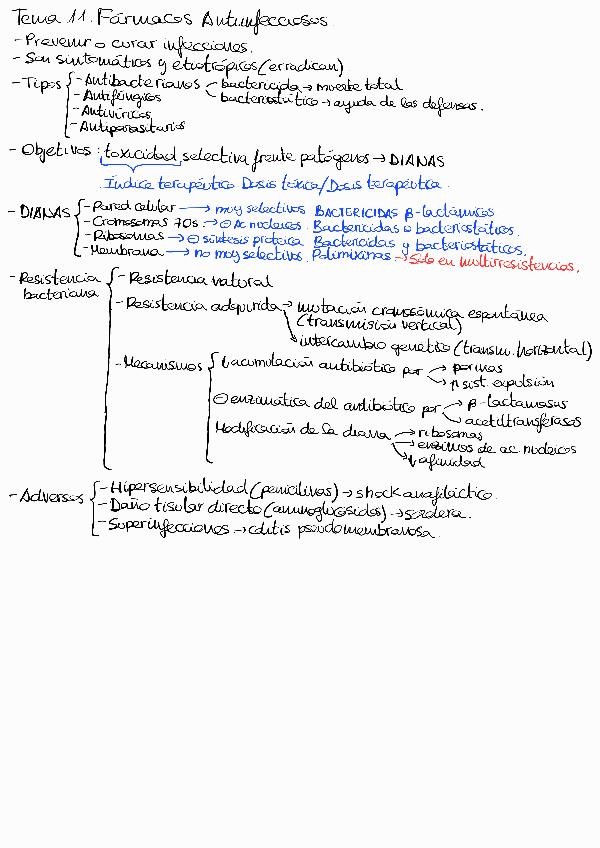 Tema 11. Fármacos Antiinfecciosos
- Prevenir o curar infecciones.
- Son sintomáticos y etiotrópicos (erradican)
- Tipos - Antibacterianos bactericida → muerte total
- Antifúngicos bacteriostático → ayuda de las defensas.
- Antivíricos
- Antiparasitarios
- Objetivos: toxicidad selectiva frente patógenos → DIANAS
Índice terapéutico Dosis tóxica/Dosis terapéutica.
- DIANAS - Pared celular → muy selectivos BACTERICIDAS β-lactámicos
- Cromosomas 70s → ⊖ Ac nucleicos. Bactericidas o bacteriostáticos.
- Ribosomas → ⊖ síntesis proteica Bactericidas y bacteriostáticos.
- Membrana → no muy selectivos. Polimixinas → Sólo en multirresistencias.
- Resistencia bacteriana - Resistencia natural
- Resistencia adquirida → mutación cromosómica espontánea
(transmisión vertical)
intercambio genético (transm. horizontal)
- Mecanismos ↓ acumulación antibiótico por → porinas
→ sist. expulsión
⊖ enzimática del antibiótico por → β-lactamasas
→ acetiltransferasas
Modificación de la diana → ribosomas
→ enzimas de ac. nucleicos
↓ afinidad
- Adversos - Hipersensibilidad (penicilinas) → shock anafiláctico.
- Daño tisular directo (aminoglucósidos) → sordera.
- Superinfecciones → colitis pseudomembranosa.